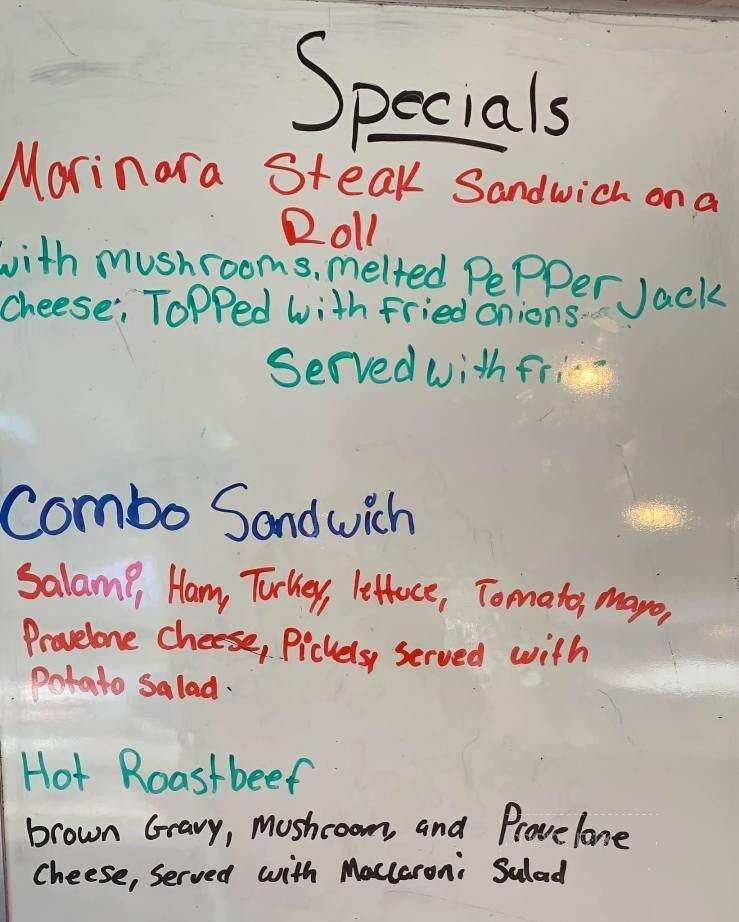 Specials
Marinara Steak Sandwich on a
Roll
with mushrooms, melted PePPer Jack
Cheese; ToPPed with Fried onions
Served with Fries
Combo Sandwich
Salami, Ham, Turkey, lettuce, Tomato, Mayo,
Provelone Cheese, Pickels, Served with
Potato Salad.
Hot Roastbeef
brown Gravy, Mushroom, and Provelone
Cheese, Served with Maccaroni Salad